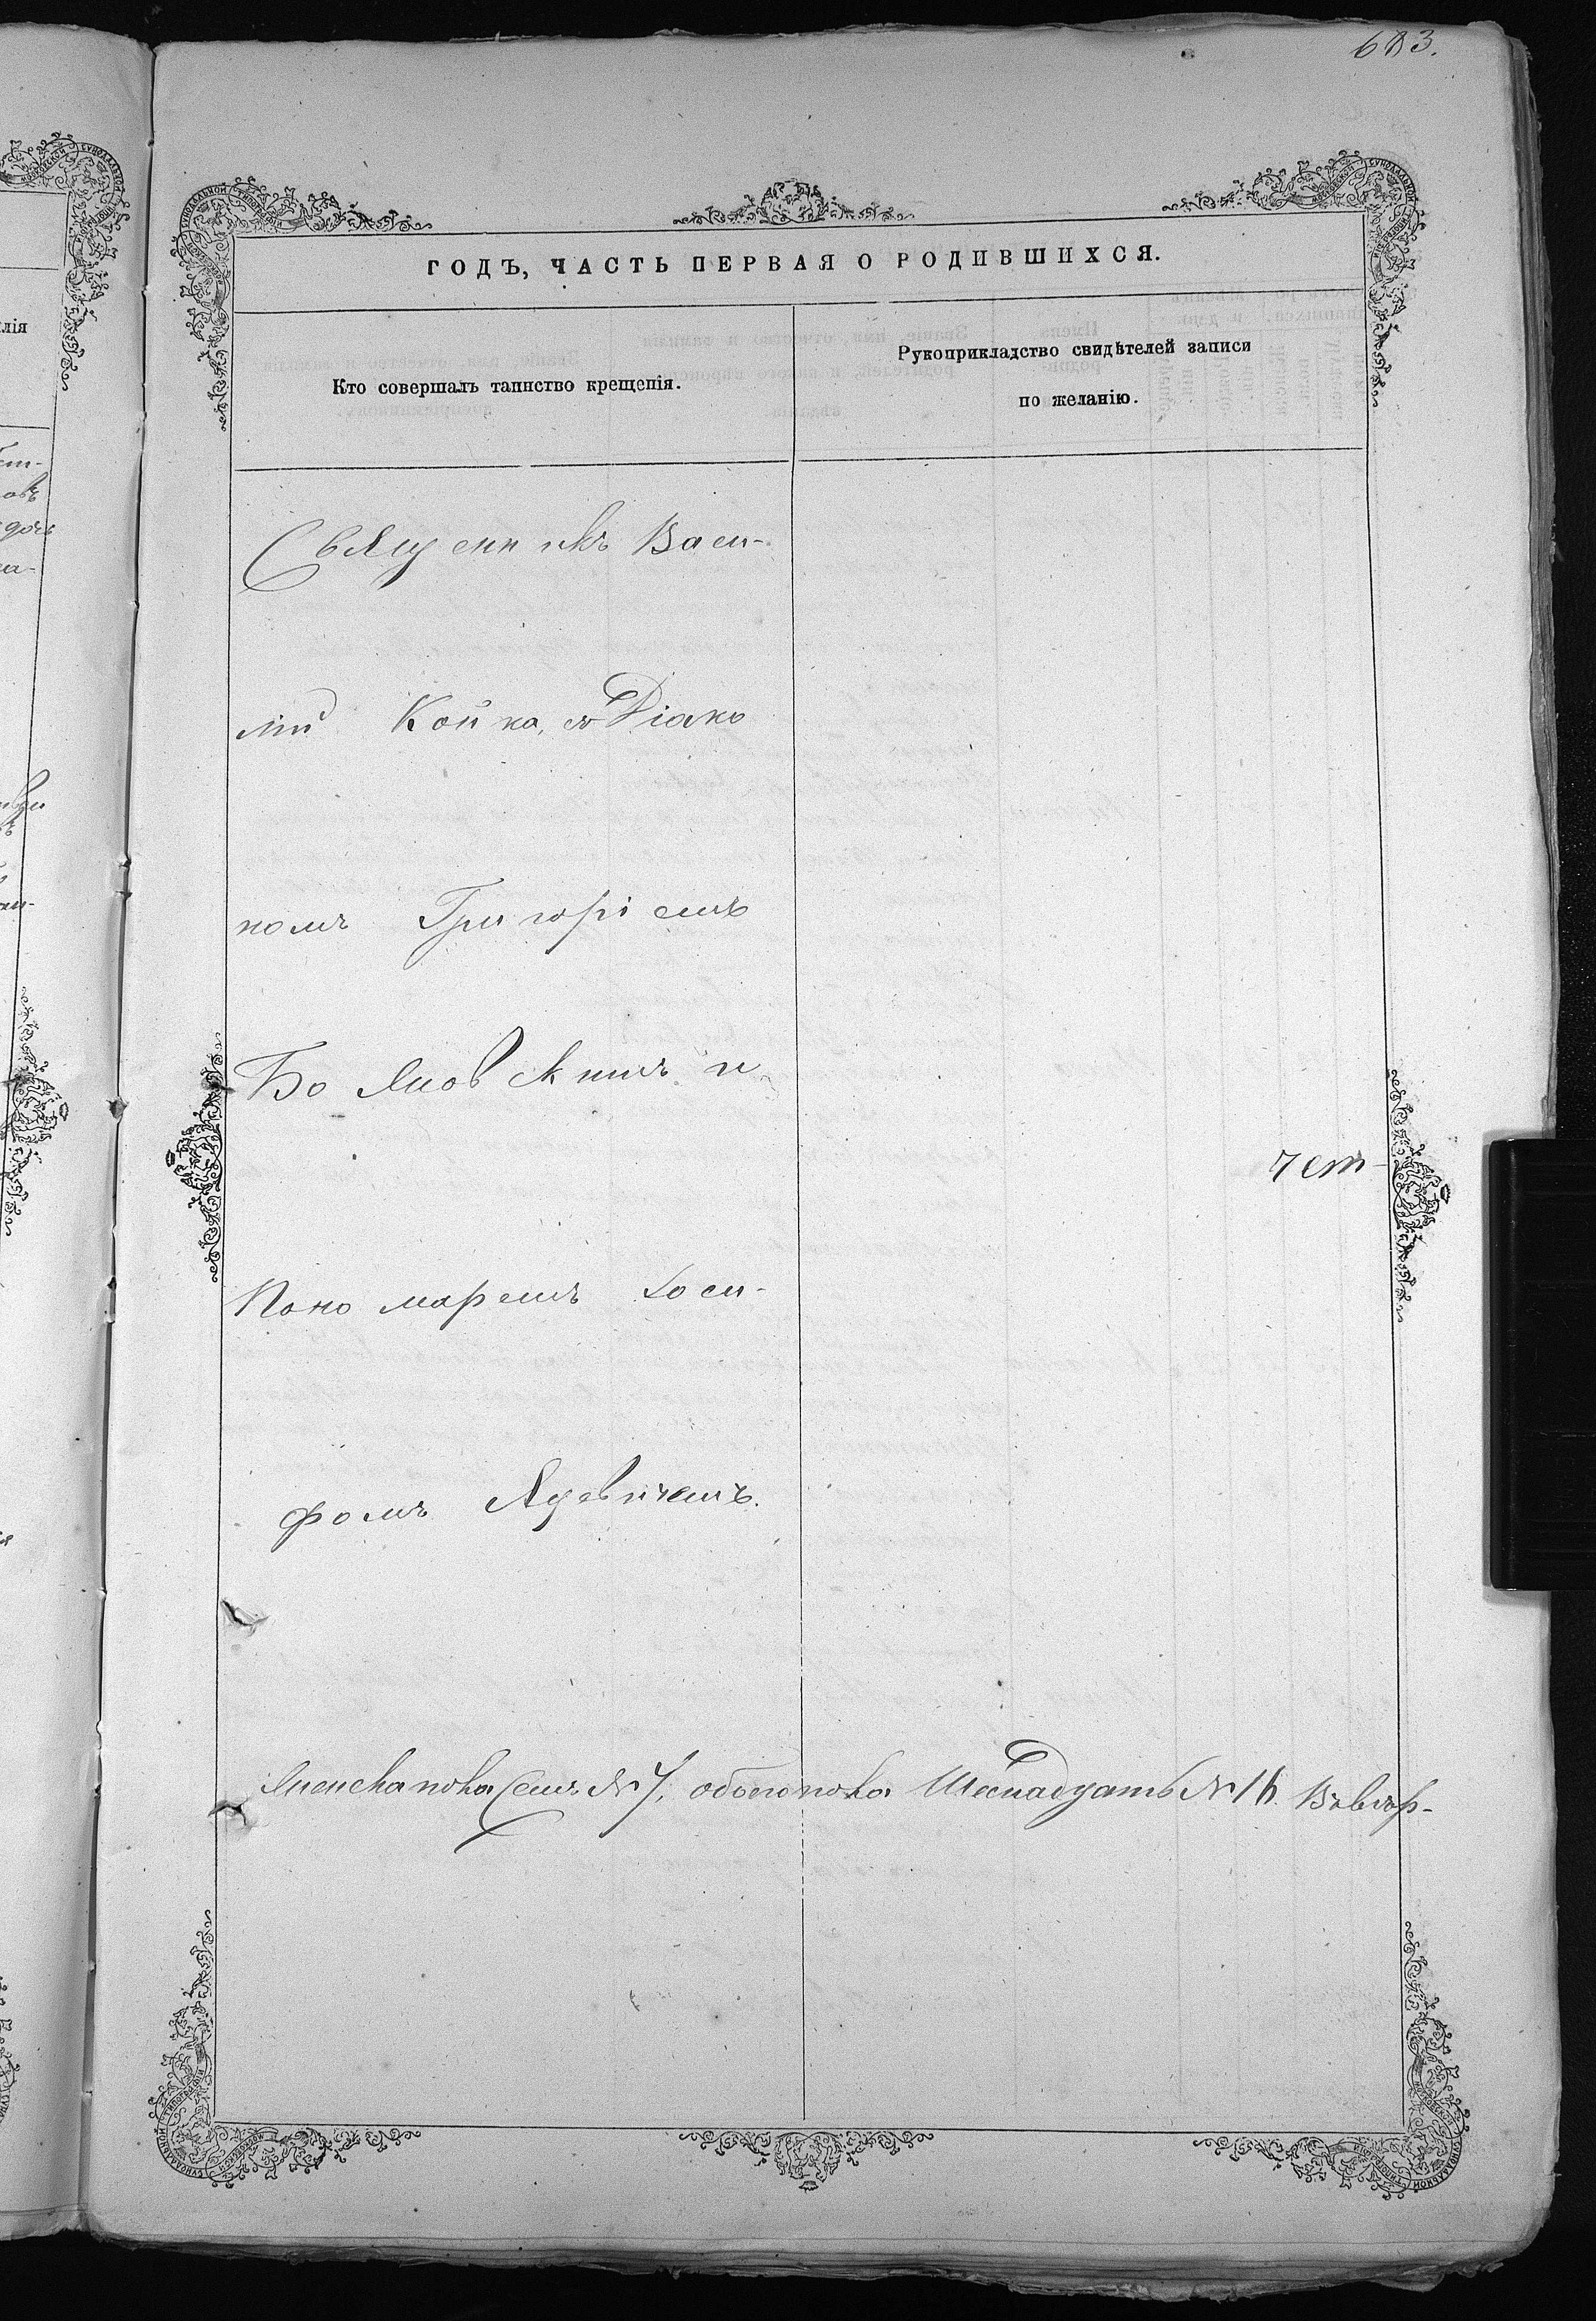 683.
ГОДЪ, ЧАСТЬ ПЕРВАЯ О РОДИВШИХСЯ.
Кто совершалъ таинство крещенія.
Рукоприкладство свидѣтелей записи
по желанію.
Священникъ Васи-
лій Койко, съ Діако
номъ Григоріемъ
Бояновскимъ и
чет-
Пономаремъ Іоси-
фомъ Яцевичемъ.
Женска пола Семь № 7, обоего пола Шеснадцать № 16.